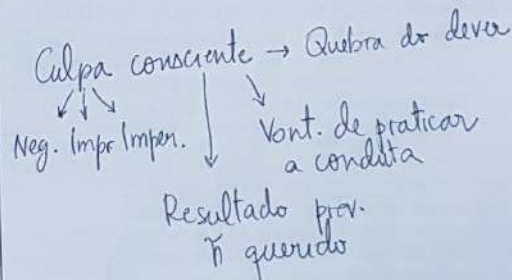 Culpa consciente → Quebra do dever
Neg. Impr Imper. Vont. de praticar
a conduta
Resultado prev.
ñ querido